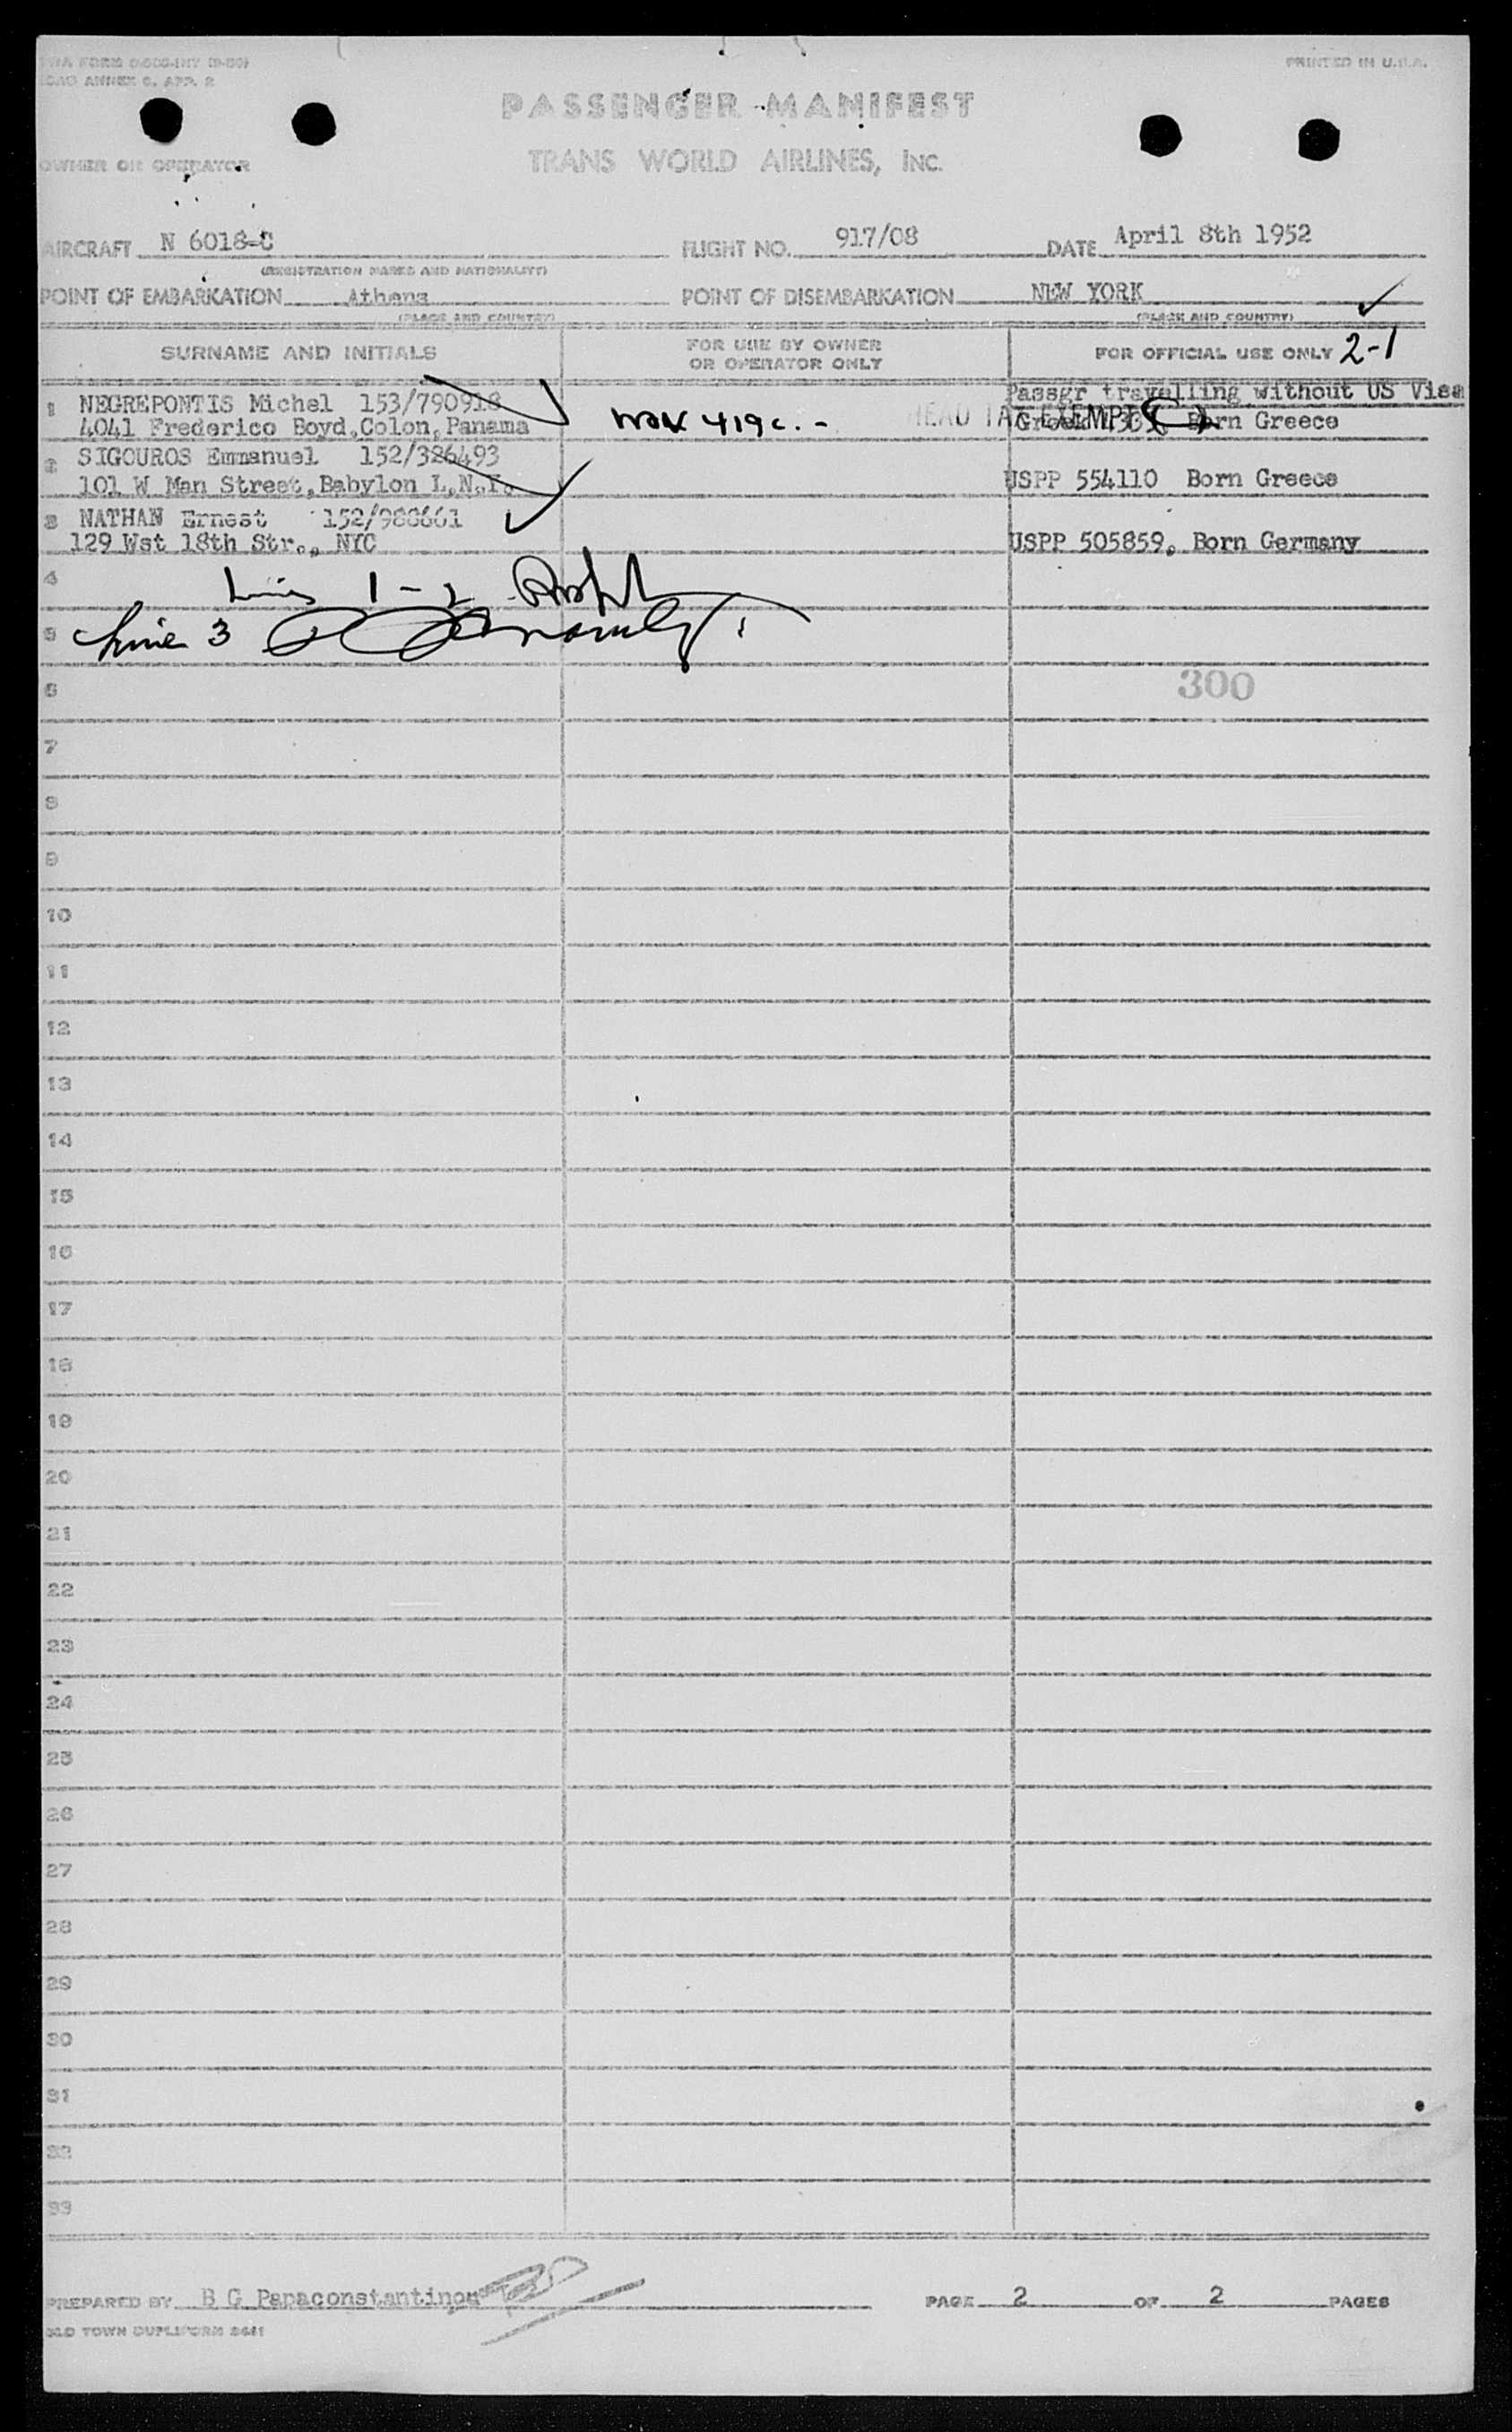 ICAO ANNEX 9, APP. 2
PRINTED IN U.S.A.
PASSENGER MANIFEST
OWNER OR OPERATOR
TRANS WORLD AIRLINES, INC.
AIRCRAFT N 6018-C FLIGHT NO. 917/08 DATE April 8th 1952
(REGISTRATION MARKS AND NATIONALITY)
POINT OF EMBARKATION Athens POINT OF DISEMBARKATION NEW YORK
(PLACE AND COUNTRY) (PLACE AND COUNTRY)
SURNAME AND INITIALS FOR USE BY OWNER OR OPERATOR ONLY FOR OFFICIAL USE ONLY 2-1
1 NEGREPONTIS Michel 153/790918 Passgr travelling without US Visa
4041 Frederico Boyd,Colon,Panama 419c.- HEAD TAX EXEMPT Born Greece
2 SIGOUROS Emmanuel 152/326493
101 W Man Street,Babylon L.N.Y. USPP 554110 Born Greece
3 NATHAN Ernest 152/988661
129 Wst 18th Str., NYC USPP 505859, Born Germany
4 Lines 1-2
5 Line 3
6 300
7
8
9
10
11
12
13
14
15
16
17
18
19
20
21
22
23
24
25
26
27
28
29
30
31
32
33
PREPARED BY B G Papaconstantinou PAGE 2 OF 2 PAGES
OLD TOWN DUPLIFORM